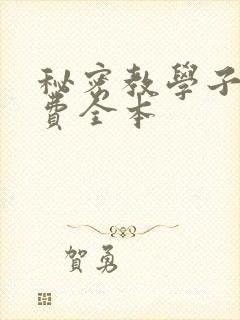 秘密教學子
費全本
賀勇